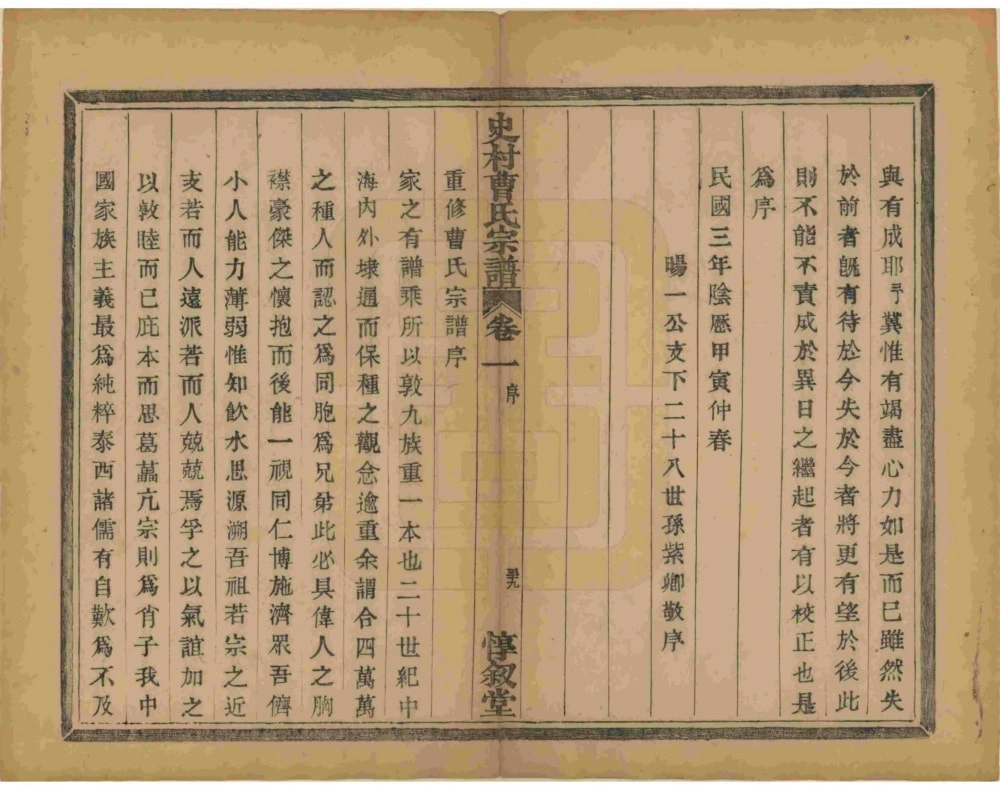 與有成耶予冀惟有竭盡心力如是而已雖然失
於前者旣有待於今失於今者將更有望於後此
則不能不責成於異日之繼起者有以校正也是
爲序
民國三年陰歷甲寅仲春
暘一公支下二十八世孫紫卿敬序
史村曹氏宗譜 卷一 序 惇叙堂
重修曹氏宗譜序
家之有譜乘所以敦九族重一本也二十世紀中
海內外埭通而保種之觀念逾重余謂合四萬萬
之種人而認之爲同胞爲兄弟此必具偉人之胸
襟豪傑之懷抱而後能一視同仁博施濟眾吾儕
小人能力薄弱惟知飮水思源溯吾祖若宗之近
支若而人遠派若而人兢兢焉孚之以氣誼加之
以敦睦而已庇本而思葛藟亢宗則爲肖子我中
國家族主義最爲純粹泰西諸儒有自歎爲不及